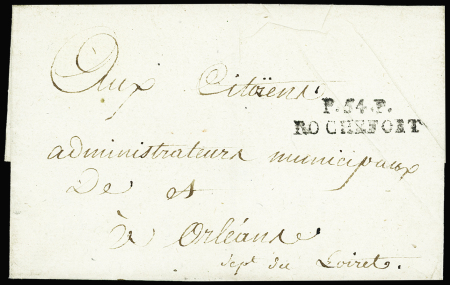 Aux Citoïens
P.54.P.
ROCHEFORT
administrateurs municipaux
De
à Orléans
Dept du Loiret.